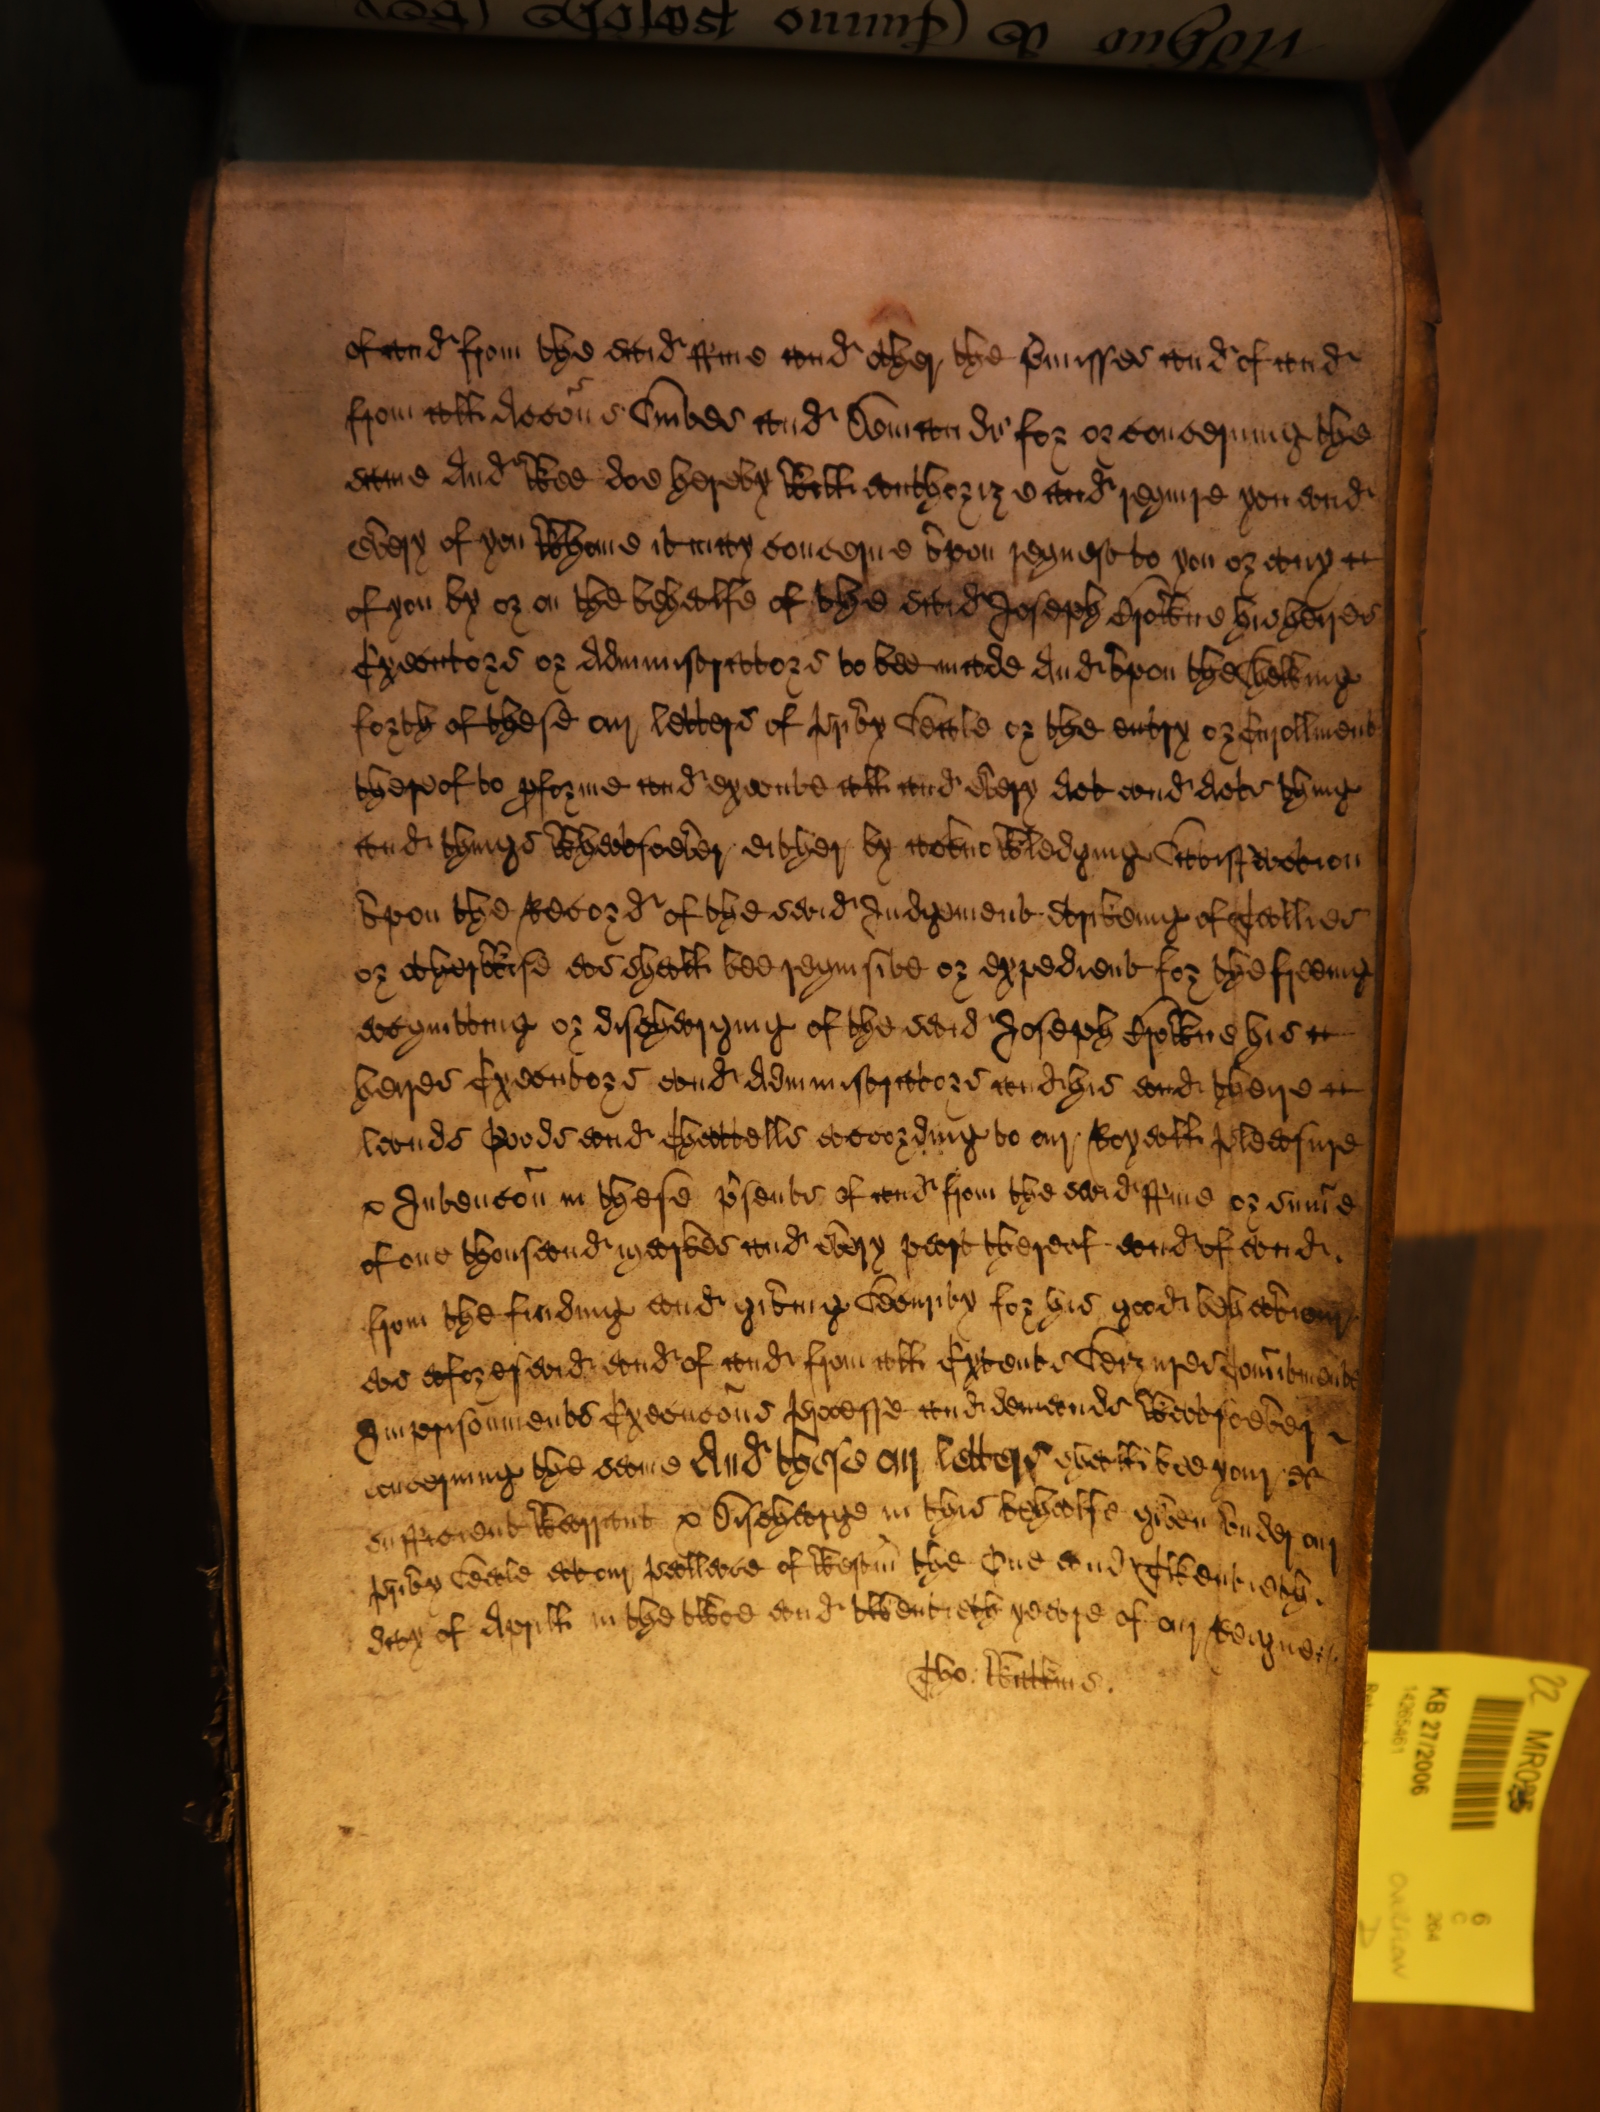 of and from the said ffine and other the p̄misses and of and
from all Acc̄ons Suites and Demands for or concerning the
same And Wee doe hereby Will authorize and require you and
every of you Whome it may concerne vpon request to you or any
of you by or on the behalfe of the said Joseph Browne his heires
Executors or Administrators to bee made And vpon the shewing
forth of these our letters of privy Seale or the entry or Enrollment
thereof to pforme and execute all and every Act and Acts thing
and things Whatsoever either by acknowledging Satisfaction
vpon the Record of the said Judgement strikeing of Tallies
or otherwise as shall bee requisite or expedient for the freeing
acquitting or discharging of the said Joseph Browne his
heires Executors and Administrators and his and theire
lands Goods and Chattells according to our Royall pleasure
& Intenc̄on in these p̄sents of and from the said ffine or sum̄e
of one thousand markes and every part thereof and of and
from the finding and giveing Security for his good behaviour
as aforesaid and of and from all Extents Seizures Com̄itments
Imprisonments Execuc̄ons Processe and demands Whatsoever
concerning the same And these our letters shall bee your
sufficient Warrant & Discharge in this behalfe given vnder our
privy Seale at our pallace of Westm̄ the One and Twentieth
day of Aprill in the twoe and twentieth yeare of our Reigne
Tho: Watkins.
22 MR025
KB 27/2006
14265461
6
C
264
OVERFLOW
D